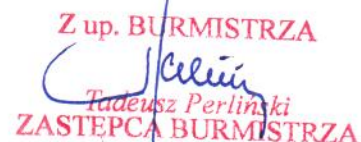 Z up. BURMISTRZA
Tadeusz Perliński
ZASTĘPCA BURMISTRZA